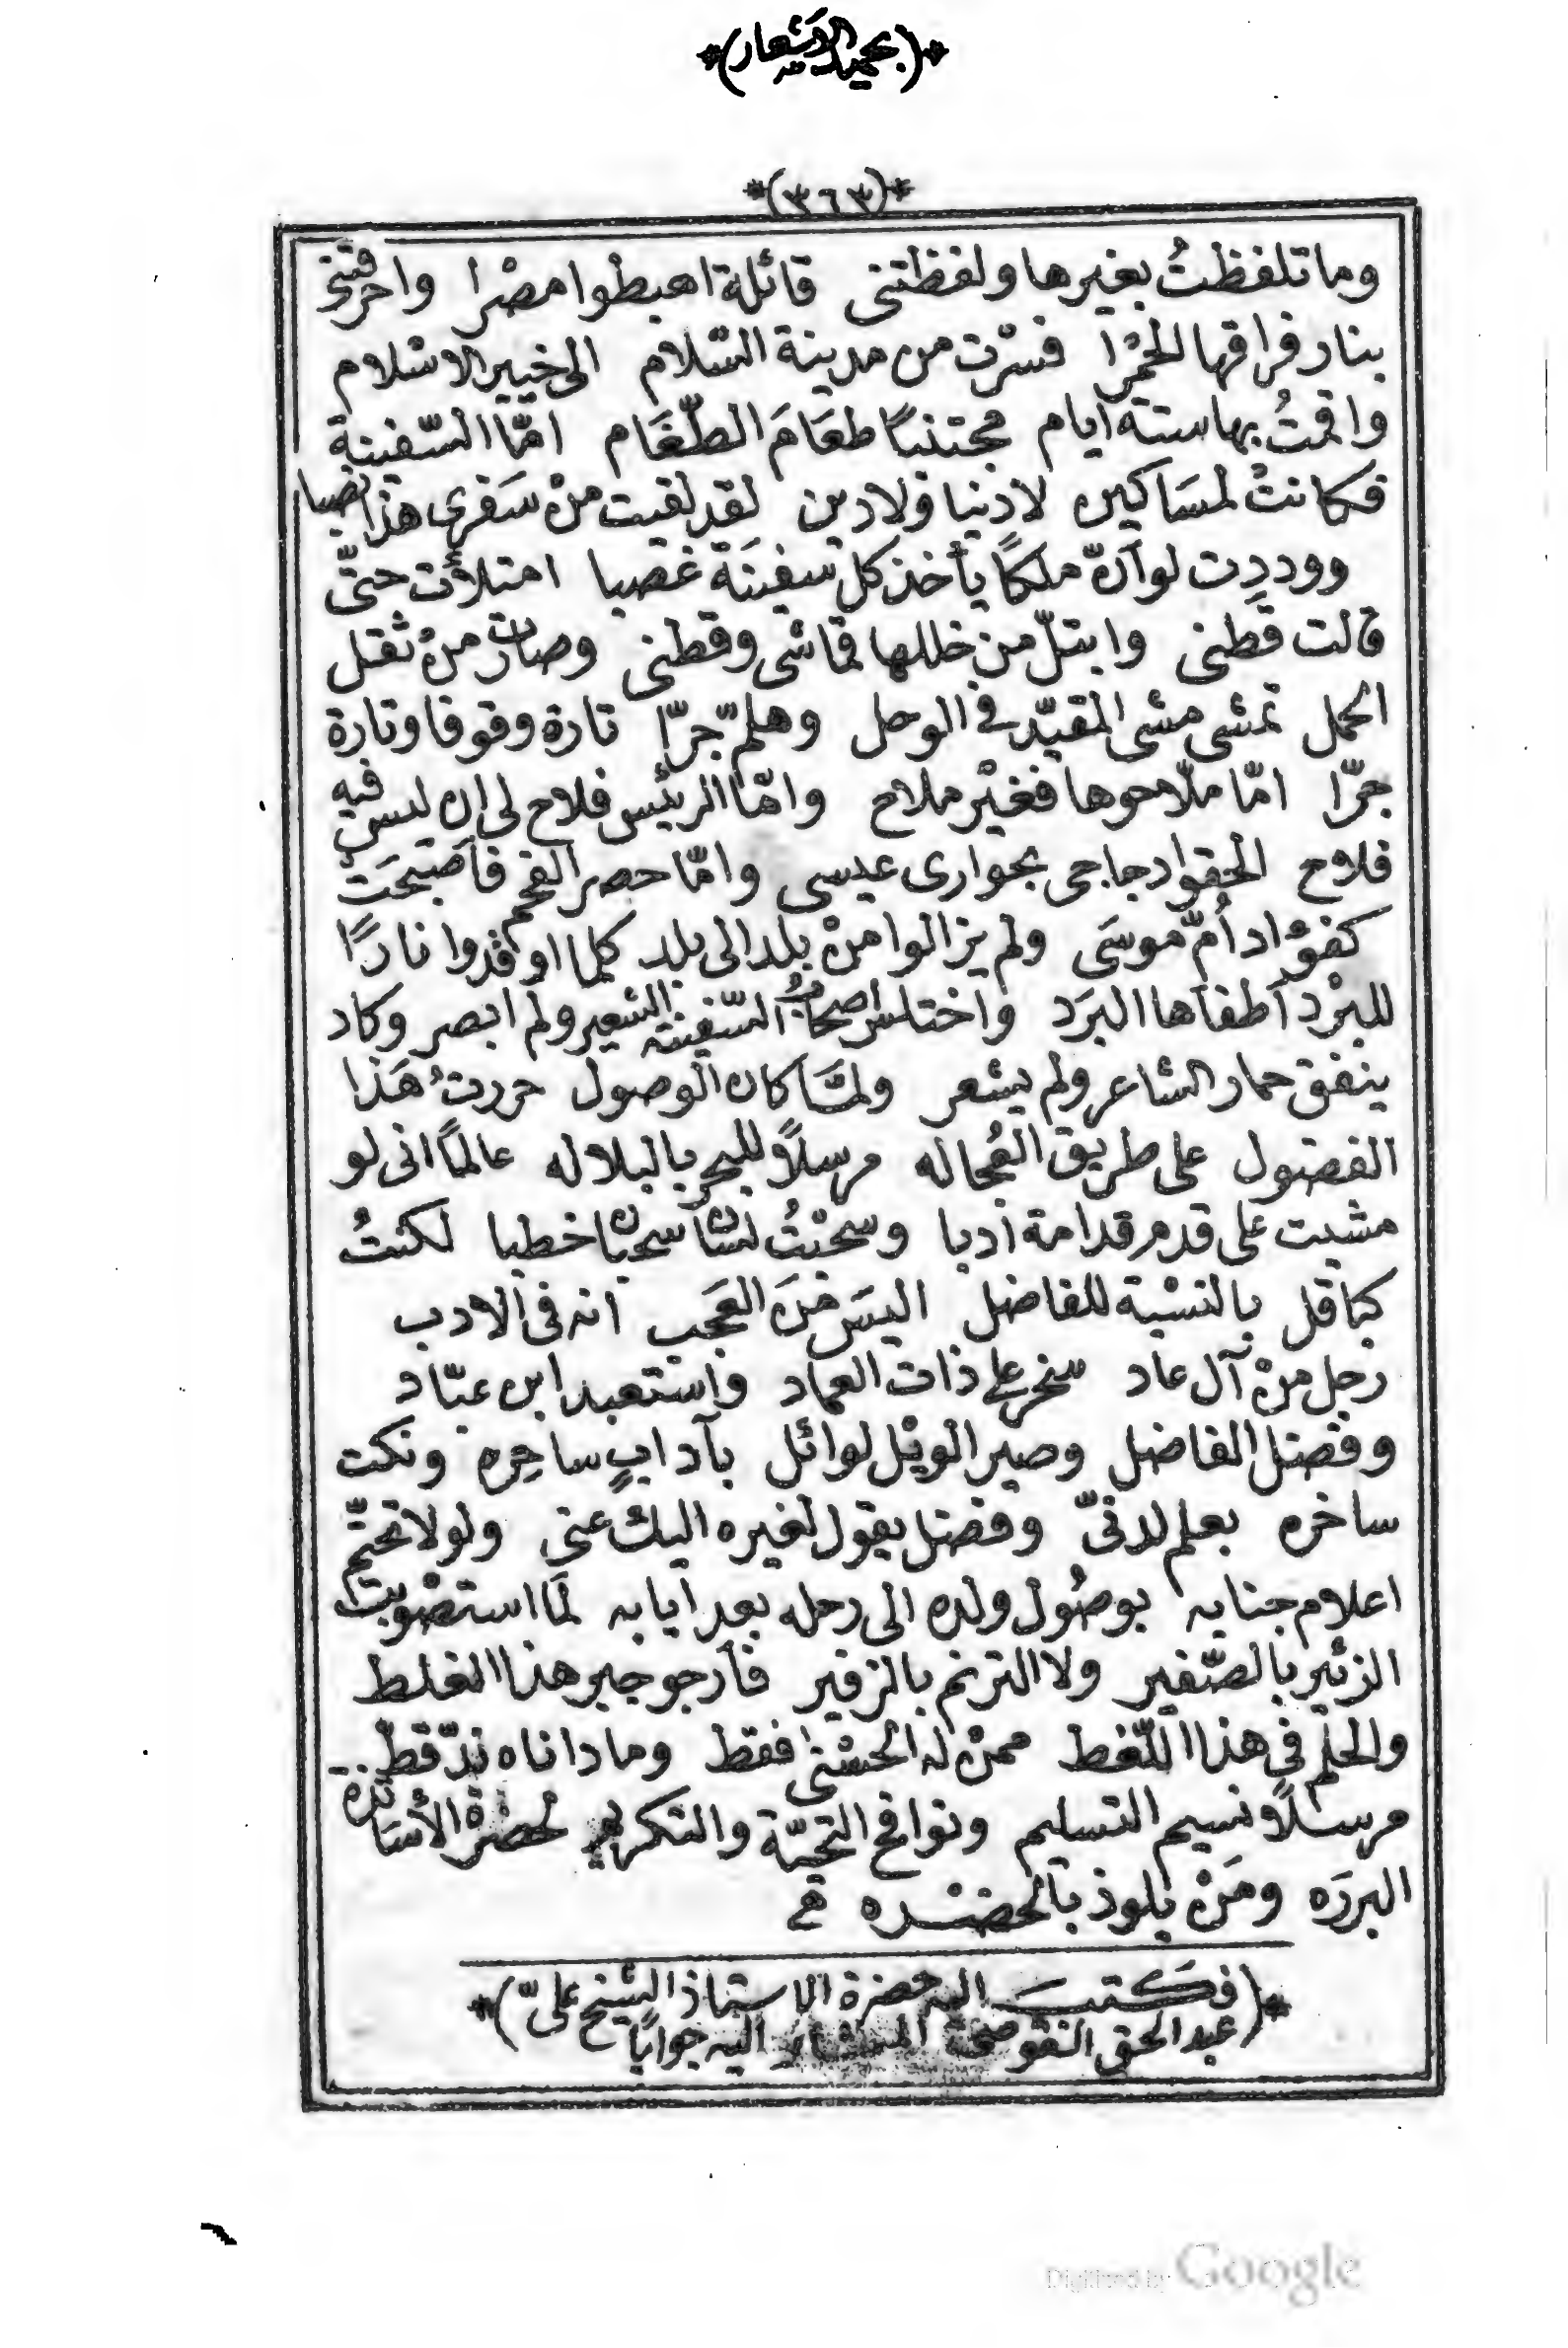 *(بحميد الاشعار)*
*(٣٦٣)*
وما تلفظتُ بغيرها ولفظتنى قائلة اهبطوا مصْرا واحرقتنى
بنار فراقها الحمْرا فسرْت من مدينة السّلام الى خيير الاسْلام
واقمتُ بها ستة أيام مجتنبًا طعَامَ الطّغَام امّا السّفينة
فكانتْ لمسَاكين لا دنيا ولا دين لقد لقيت منْ سَفرى هذا نصبا
ووددت لو أنّ ملكًا يأخذ كل سَفينَة غصبا امتلأت حتَّى
قالت قَطنى وابتلّ من خللها قماشى وقطنى وصارت منْ ثقل
الحمل تمشى مشى المقيّد فى الوحل وهلمّ جرّا تارة وقوفا وتارة
جرّا امّا ملّاحوها فغيْر ملاح وامّا الرئيس فلاح لى ان ليسَ فيه
فلاح الحقوا دجاجى بحوارى عيسى وامّا حصر الفحم فأصْبحَتْ
كفؤاد أُمّ موسَى ولم يزالوا منْ بلد الى بلد كلما اوقدوا نارًا
للبرْد أطفأها البرَد واختلس اصحَابُ السّفينة الشعير ولم ابصر وكاد
ينفق حمار الشاعر ولم يشعر ولمّا كان الوصول حررتُ هَذا
الفصول على طريق العُجاله مرسلًا للبحر بالبلاله عالمًا انى لو
مشيت على قدم قدامة أدبا وسحبْتُ لسَان سحبَان خطبا لكنتُ
كباقل بالنسْبة للفاضل اليسَ منَ العَجَب انه فى الادب
رجل منْ آل عاد سخر على ذات العماد واستعبد ابن عبّاد
وفضل الفاضل وصير الويْل لوائل بآدابٍ ساحِره ونكت
ساخره بعلم لدنىّ وفضل يقول لغيره اليك عنى ولولا تحتّم
اعلام جنابه بوصُول ولده الى رحله بعد ايابه لمَا استصْوبت
الزئير بالصّفير ولا الترنم بالزفير فأرجو جبر هذا الغلط
والحلْم فى هذا اللّغط ممنْ له الحسْنى فقط وما داناه ندّ قط
مرسلًا نسيم التسليم ونوافح التحيّة والتكريم لحضرْة الأسَاتذة
البررَه ومَنْ يلوذ بالحضْره
*(فكتب اليه حضرة الاستاذ الشيخ علىّ)*
(عبد الحق القوصىّ المشار اليه جوابًا)
Digitized by Google